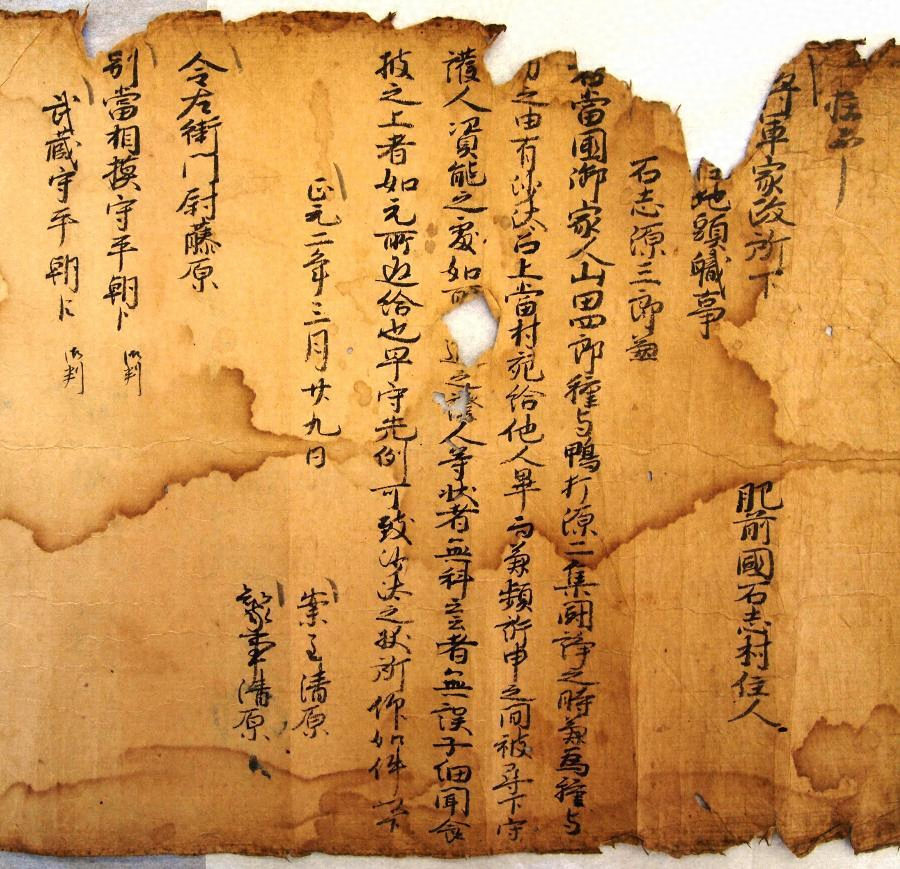 将軍家政所下　肥前國石志村住人
地頭職事
石志源三郎兼
右當國御家人山田四郎種与鴨打源二集闘諍之時兼為種与
之由有沙汰 上當村宛給他人畢而兼類所申之間被尋下守
護人資能之處如 進之證人等状者無科云者無誤子細聞食
披之上者如元所返給也早守先例可致沙汰之状所仰如件以下
正元二年三月廿九日
案主清原
知家事清原
令左衛門尉藤原
別當相模守平朝臣　御判
武蔵守平朝臣　御判